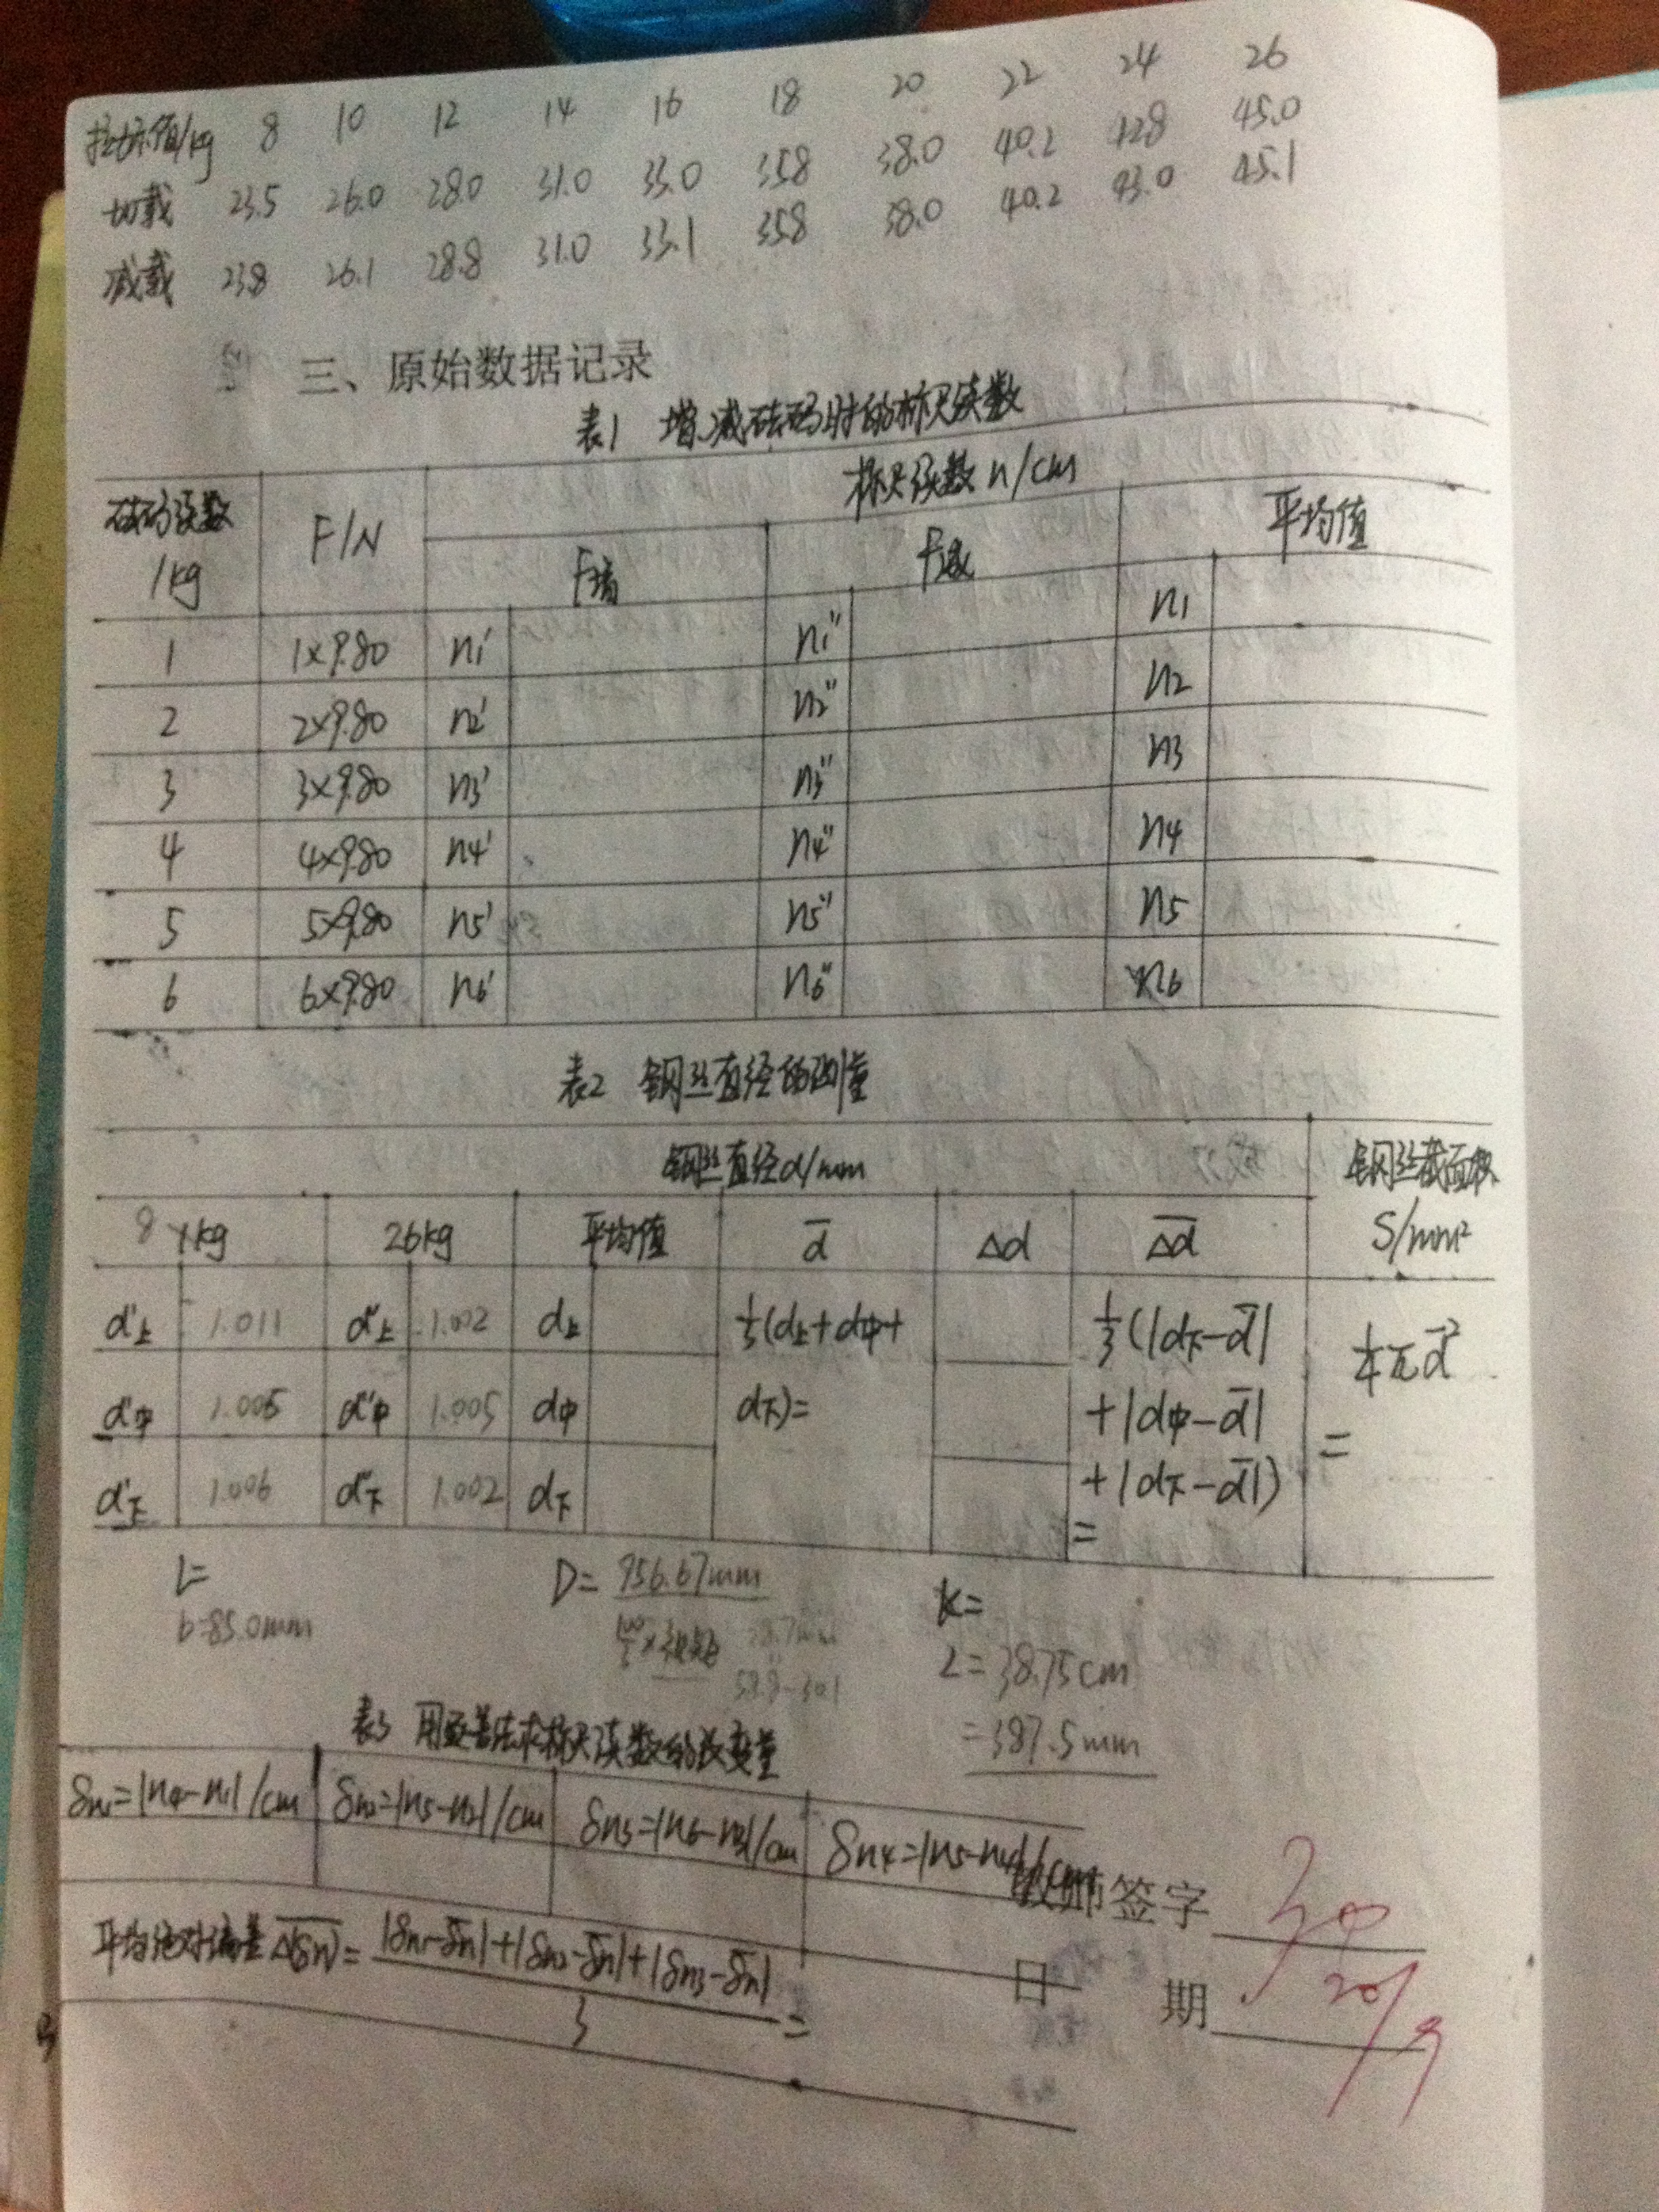 拉力示值/kg 8 10 12 14 16 18 20 22 24 26
加载 23.5 26.0 28.0 31.0 33.0 35.8 38.0 40.2 42.8 45.0
减载 23.8 26.1 28.8 31.0 33.1 35.8 38.0 40.2 43.0 45.1
三、原始数据记录
表1 增、减砝码时的标尺读数
砝码读数 /kg F/N 标尺读数 n/cm
F增 F减 平均值
1 1×9.80 n1' n1'' n1
2 2×9.80 n2' n2'' n2
3 3×9.80 n3' n3'' n3
4 4×9.80 n4' n4'' n4
5 5×9.80 n5' n5'' n5
6 6×9.80 n6' n6'' n6
表2 钢丝直径的测量
钢丝直径d/mm 钢丝截面积 S/mm²
8 kg 26kg 平均值 d̅ Δd Δ̅d̅
d'上 1.011 d''上 1.002 d上 ⅓(d上+d中+ ⅓(|d下-d̅| ¼πd̅²
d'中 1.005 d''中 1.005 d中 d下)= +|d中-d̅| =
d'下 1.006 d''下 1.002 d下 +|d下-d̅|)
=
L= D= 956.67mm K=
b=85.0mm 28.7mm L=38.75cm
58.8-30.1
=387.5mm
表3 用逐差法求标尺读数的改变量
δn1=|n4-n1|/cm δn2=|n5-n2|/cm δn3=|n6-n3|/cm δn4=|n5-n4|/cm
教师签字
平均绝对偏差Δ(δn)= |δn1-δ̅n̅|+|δn2-δ̅n̅|+|δn3-δ̅n̅|
3 =
日 期